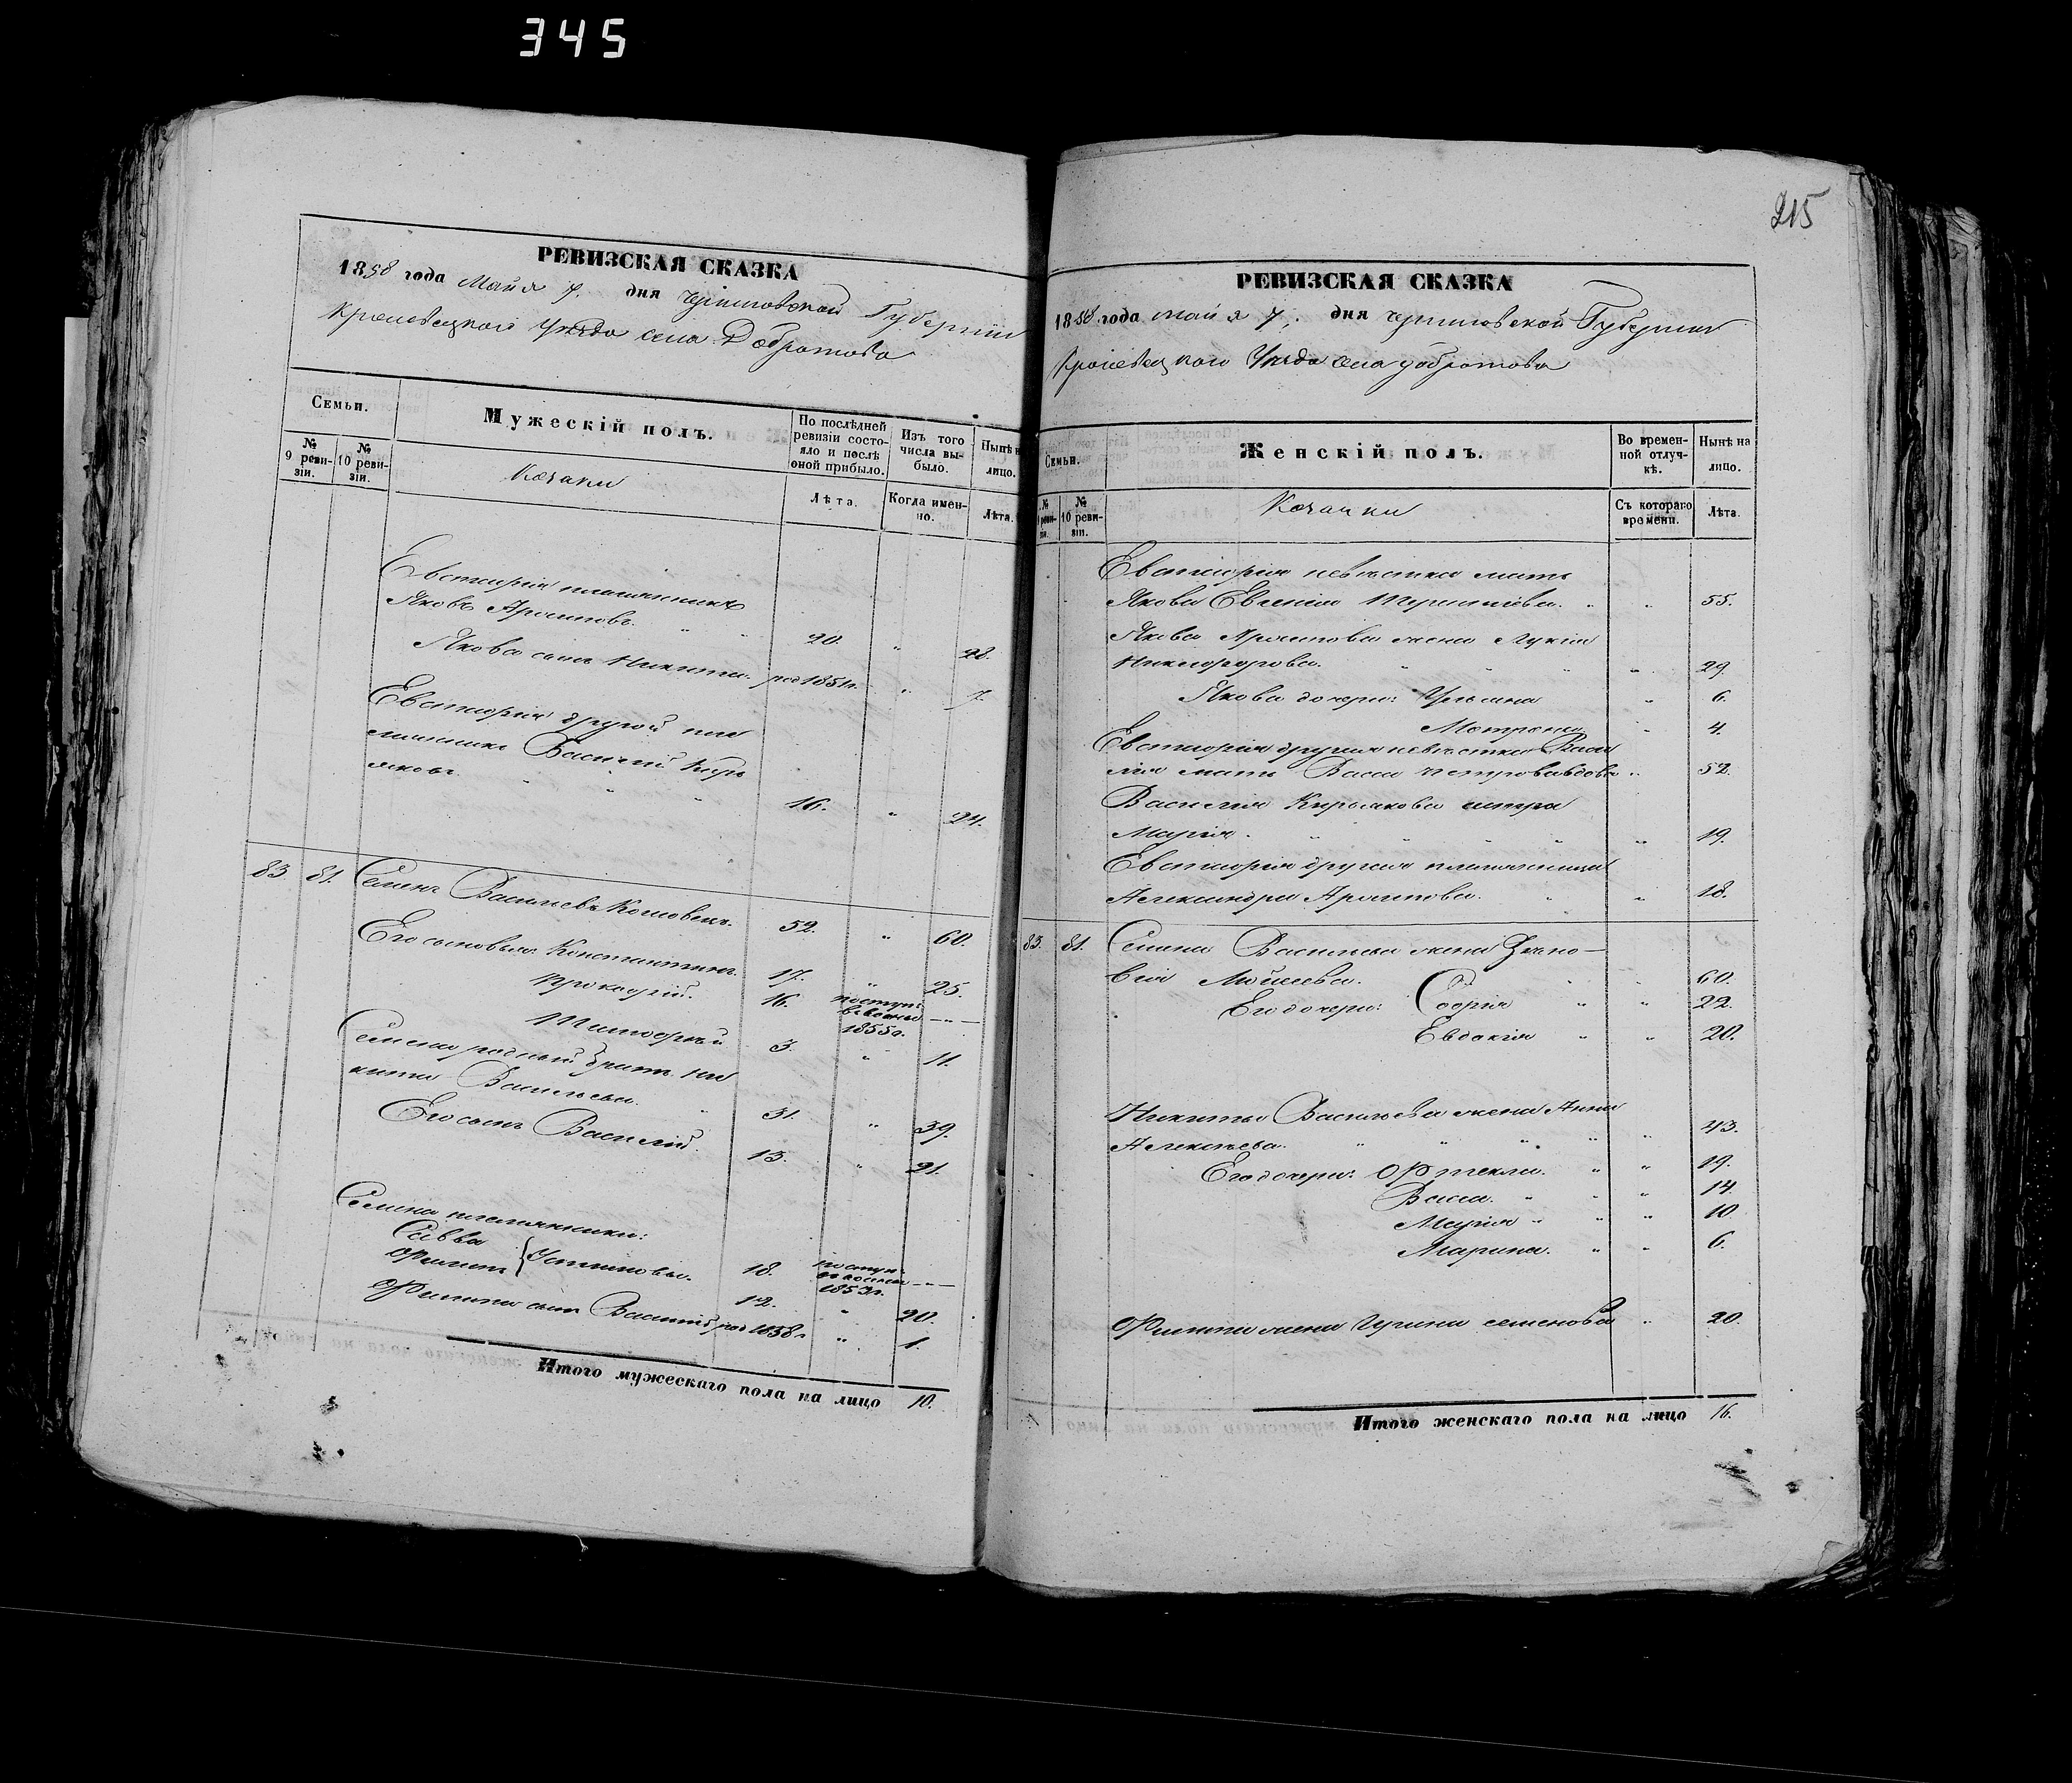 345
РЕВИЗСКАЯ СКАЗКА
1858 года Майя 7. дня Черниговской Губернии
Кролевецкого Уезда села Добротова
Семьи.
Мужескій полъ.
По послѣдней ревизіи состояло и послѣ оной прибыло.
Изъ того числа выбыло.
Нынѣ н лицо.
№ 9 ревизіи.
№ 10 ревизіи.
Козаки
Лѣта.
Когда именно.
Лѣта.
Евстафія племянникъ
Яковъ Архиповъ. 20. " 28.
Якова сынъ Никита. род 1851г. " 7.
Евстафія другой пле
мянникъ Василій Кирь
яковъ. 16. " 24.
83 81. Семенъ Васильевъ 52. " 60.
Его сыновья: Константинъ. 17. " 25.
Прокофій. 16. поступ. в 1855г. —"—
Тимофей 3. " 11.
Семена родный братъ Ни
кита Васильевъ. 31. " 39.
Его сынъ Василій. 13. " 21.
Семена племянники:
Савва
Филипъ } Устиновы. 18. поступ. 1853г. —"—
12. " 20.
Филипа сынъ Василій род 1858г " 1.
Итого мужескаго пола на лицо 10.
215
РЕВИЗСКАЯ СКАЗКА
1858 года майя 7, дня Черниговской Губернии
Кролевецкого Уезда села Добротова
Семьи.
Женскій полъ.
Во временной отлучкѣ.
Нынѣ на лицо.
№ ревизіи.
№ 10 ревизіи.
Козачки
Съ котораго времени.
Лѣта.
Евстафія невестка мать
Якова Евгенія " 55.
Якова Архипова жена Лукія
Никифорова. " 29.
Якова дочери: Ульяна " 6.
Матрена " 4.
Евстафія другая невестка Васи
лія мать Васса Петрова вдова " 52.
Василія Кирьякова сестра
Марія. " 19.
Евстафія другая племянница
Александра Архипова. " 18.
83. 81. Семена Васильева жена Зѣно-
вія Мойсеева. " 60.
Его дочери: Софія " 22.
Евдокія " 20.
Никиты Васильева жена Анна
Алексѣева. " 43.
Его дочери: Фтекла. " 19.
Васса. " 14
Марія " 10
Марина. " 6.
Филипа жена Ирина Семенова " 20.
Итого женскаго пола на лицо 16.